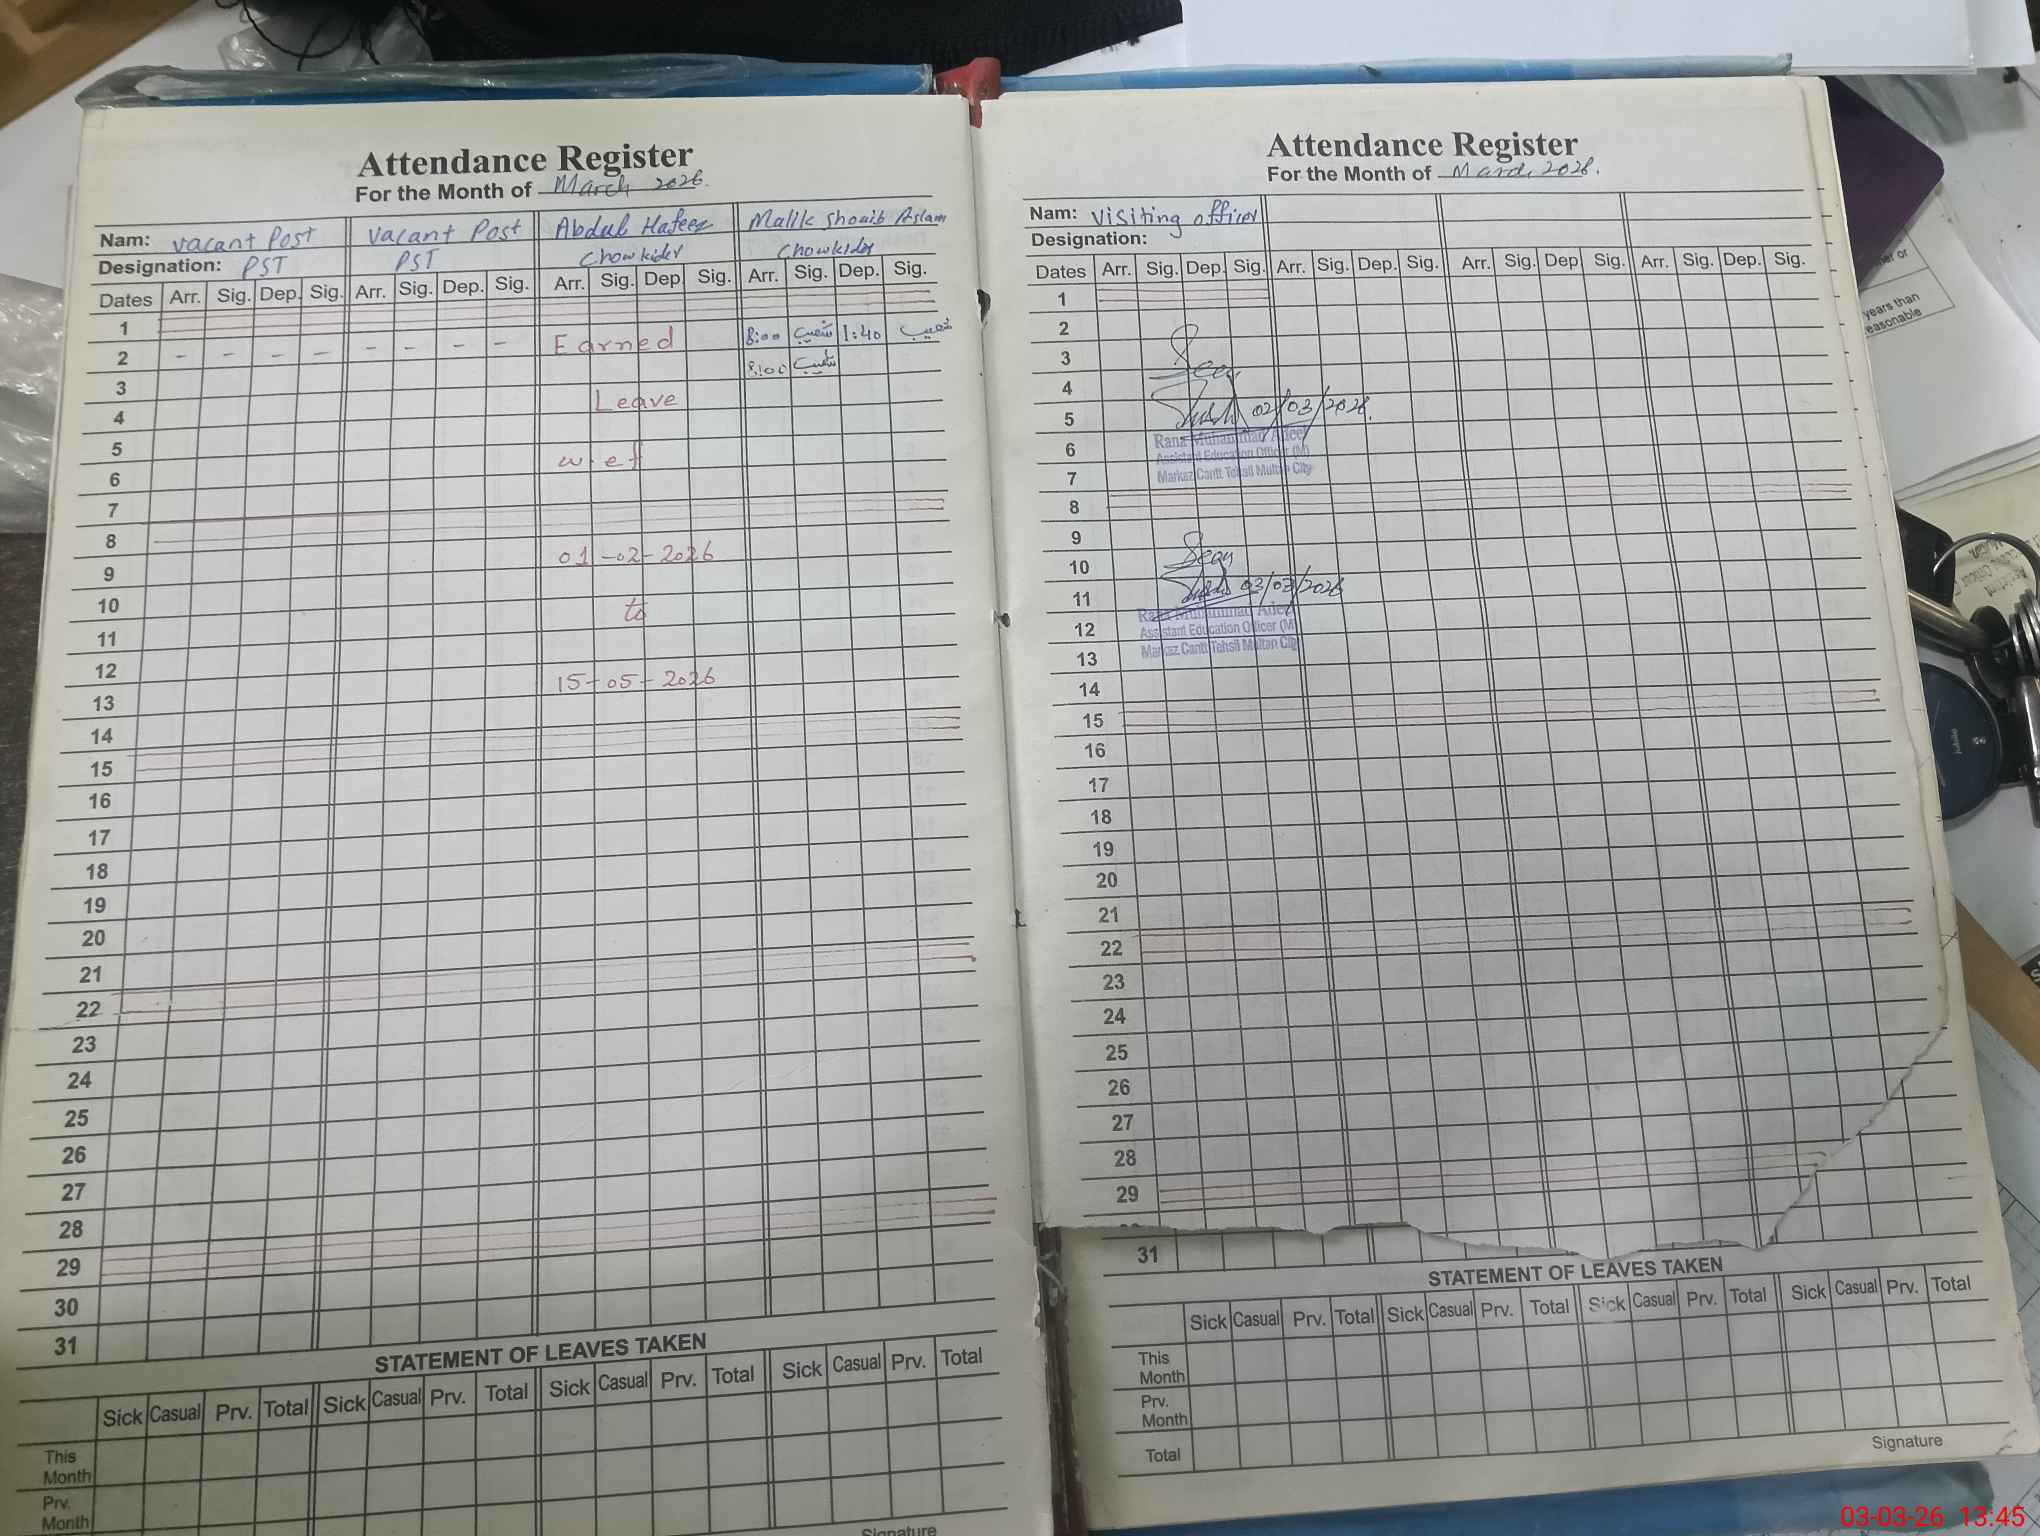 Attendance Register
For the Month of March 2026.
Nam: vacant Post vacant Post Abdul Hafeez Malik Shoaib Aslam
Designation: PST PST Chowkider Chowkider
Dates Arr. Sig. Dep. Sig. Arr. Sig. Dep. Sig. Arr. Sig. Dep. Sig. Arr. Sig. Dep. Sig.
1
2 - - - - - - - - Earned 8:00 شعیب 1:40 شعیب
3 8:00 شعیب
4 Leave
5
6 w.e.f
7
8
9 01-02-2026
10
11 to
12
13 15-05-2026
14
15
16
17
18
19
20
21
22
23
24
25
26
27
28
29
30
31
STATEMENT OF LEAVES TAKEN
Sick Casual Prv. Total Sick Casual Prv. Total Sick Casual Prv. Total Sick Casual Prv. Total
This Month
Prv. Month
Signature
Attendance Register
For the Month of March 2026.
Nam: Visiting officer
Designation:
Dates Arr. Sig. Dep. Sig. Arr. Sig. Dep. Sig. Arr. Sig. Dep Sig. Arr. Sig. Dep. Sig.
1
2
3
4 Seen
5 02/03/2026.
6 Rana Muhammad Adeel
Assistant Education Officer (M)
7 Markaz Cantt Tehsil Multan City
8
9
10 Seen
11 03/03/2026
Rana Muhammad Adeel
12 Assistant Education Officer (M)
13 Markaz Cantt Tehsil Multan City
14
15
16
17
18
19
20
21
22
23
24
25
26
27
28
29
31
STATEMENT OF LEAVES TAKEN
Sick Casual Prv. Total Sick Casual Prv. Total Sick Casual Prv. Total Sick Casual Prv. Total
This Month
Prv. Month
Total
Signature
years than
reasonable
03-03-26 13:45